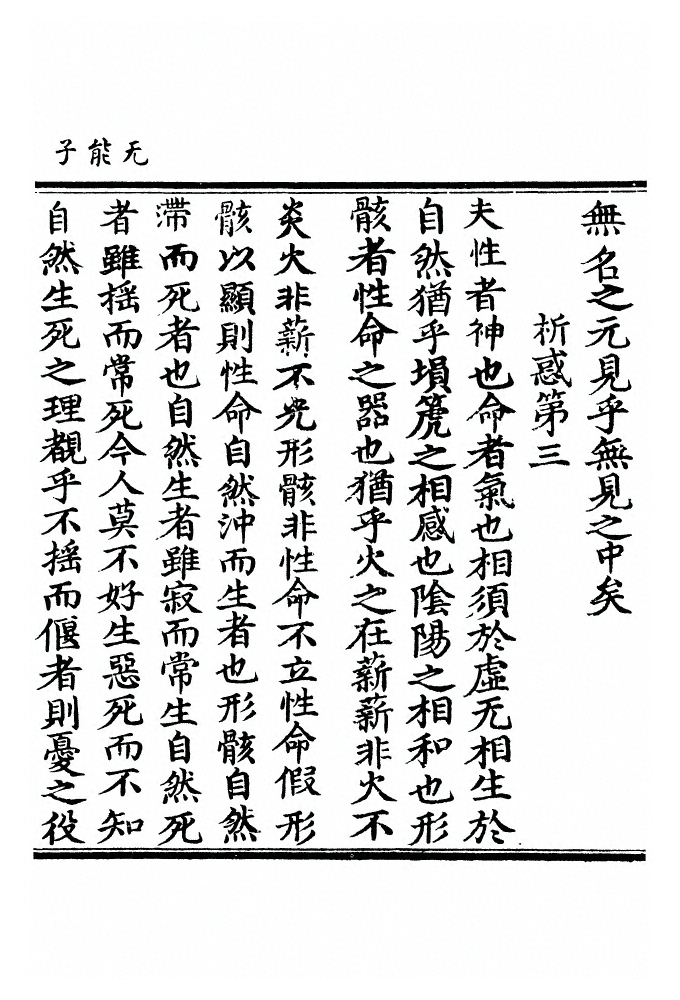 无能子
無名之元見乎無見之中矣
析惑第三
夫性者神也命者氣也相須於虛无相生於
自然猶乎塤篪之相感也陰陽之相和也形
骸者性命之器也猶乎火之在薪薪非火不
炎火非薪不光形骸非性命不立性命假形
骸以顯則性命自然沖而生者也形骸自然
滯而死者也自然生者雖寂而常生自然死
者雖揺而常死今人莫不好生惡死而不知
自然生死之理覩乎不揺而偃者則憂之役